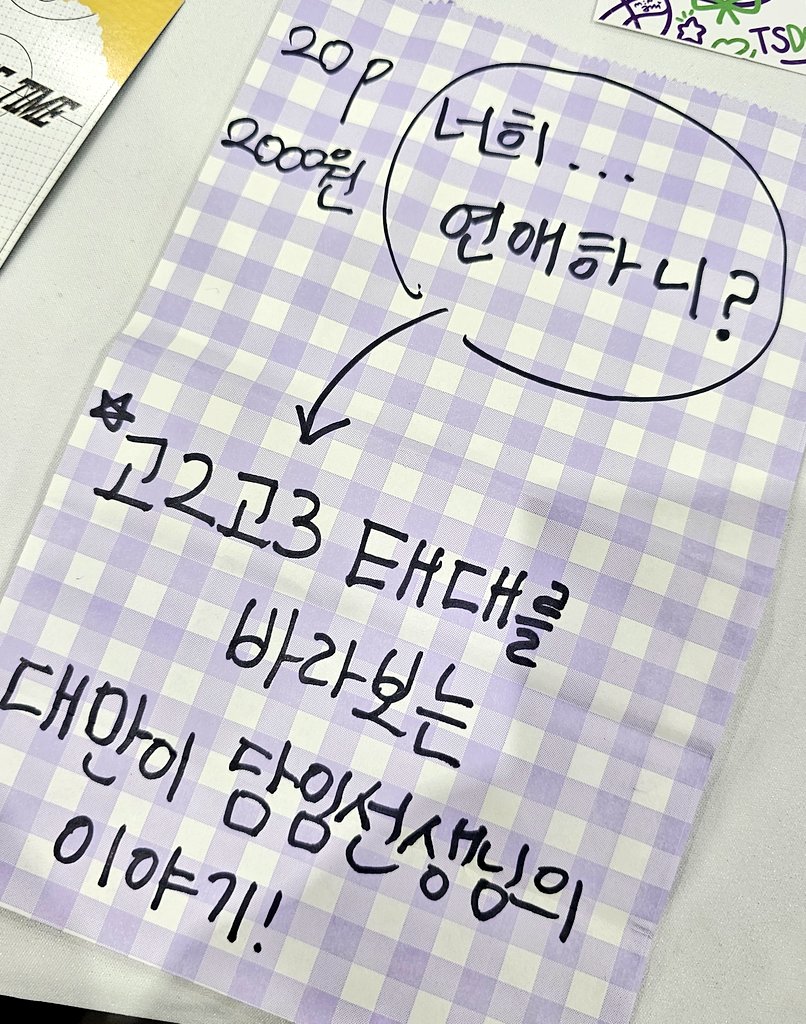 TIME
TSD
20p
2000원
너희...
연애하니?
고2고3 태대를
바라보는
대만이 담임선생님의
이야기!